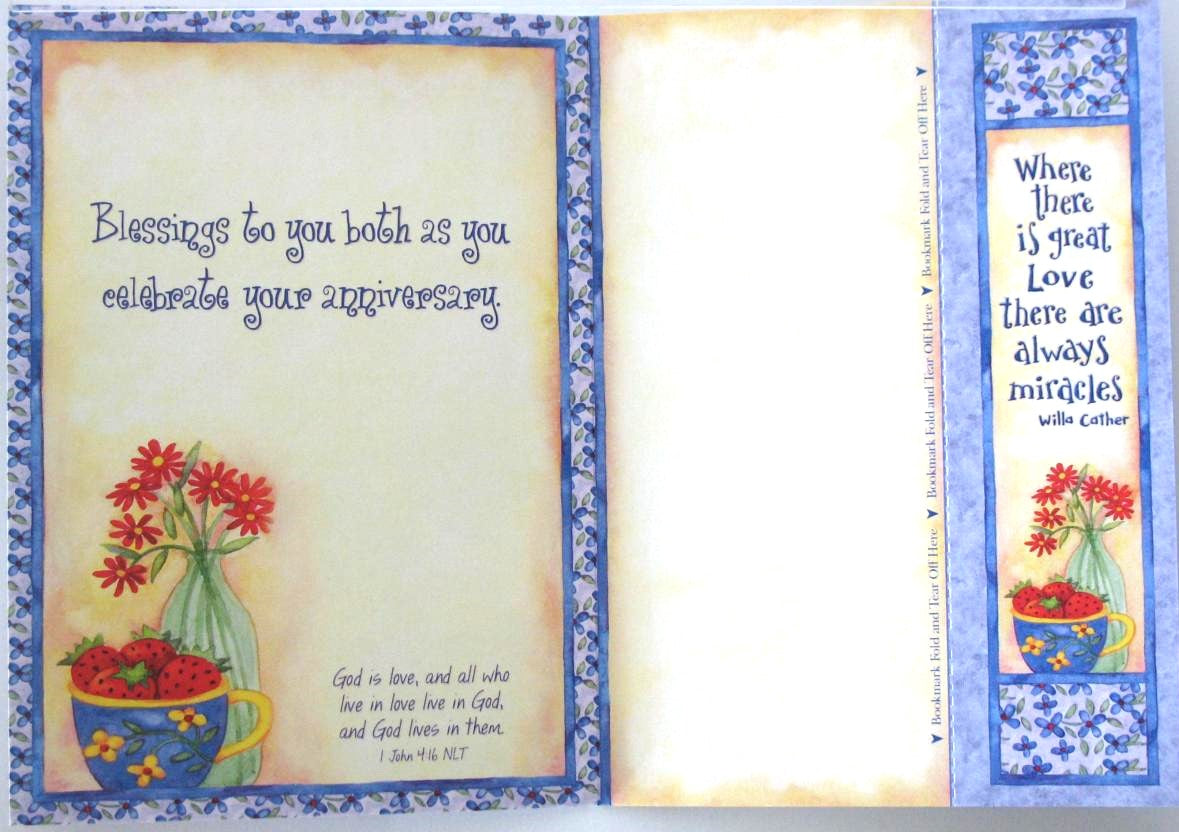 Blessings to you both as you
celebrate your anniversary.
God is love, and all who
live in love live in God,
and God lives in them.
1 John 4:16 NLT
Bookmark Fold and Tear Off Here
Bookmark Fold and Tear Off Here
Bookmark Fold and Tear Off Here
Where
there
is great
Love
there are
always
miracles
Willa Cather